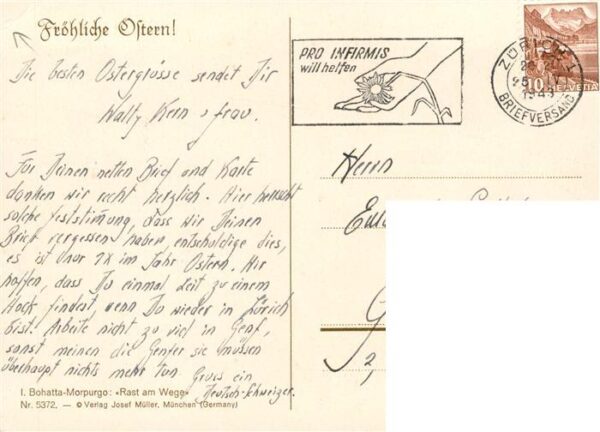 Fröhliche Ostern!
Die besten Ostergrüsse sendet Dir
Walty Kern & frau.
Für Deinen netten Brief und Karte
danken wir recht herzlich. Hier herrscht
solche feststimung, dass wir Deinen
Brief vergessen haben, entschuldige dies,
es ist nur 1x im Jahr Ostern. Wir
hoffen, dass Du einmal Zeit zu einem
Hock findest, wenn Du wieder in Zürich
bist. Arbeite nicht zu viel in Genf,
sonst meinen die Genfer sie müssen
überhaupt nichts mehr tun.
Gruss ein
Deutsch-Schweizer.
I. Bohatta-Morpurgo: «Rast am Wege»
Nr. 5372. — © Verlag Josef Müller, München (Germany)
PRO INFIRMIS
will helfen
ZÜRICH 1
BRIEFVERSAND
10 HELVETIA
Herrn
G
2,